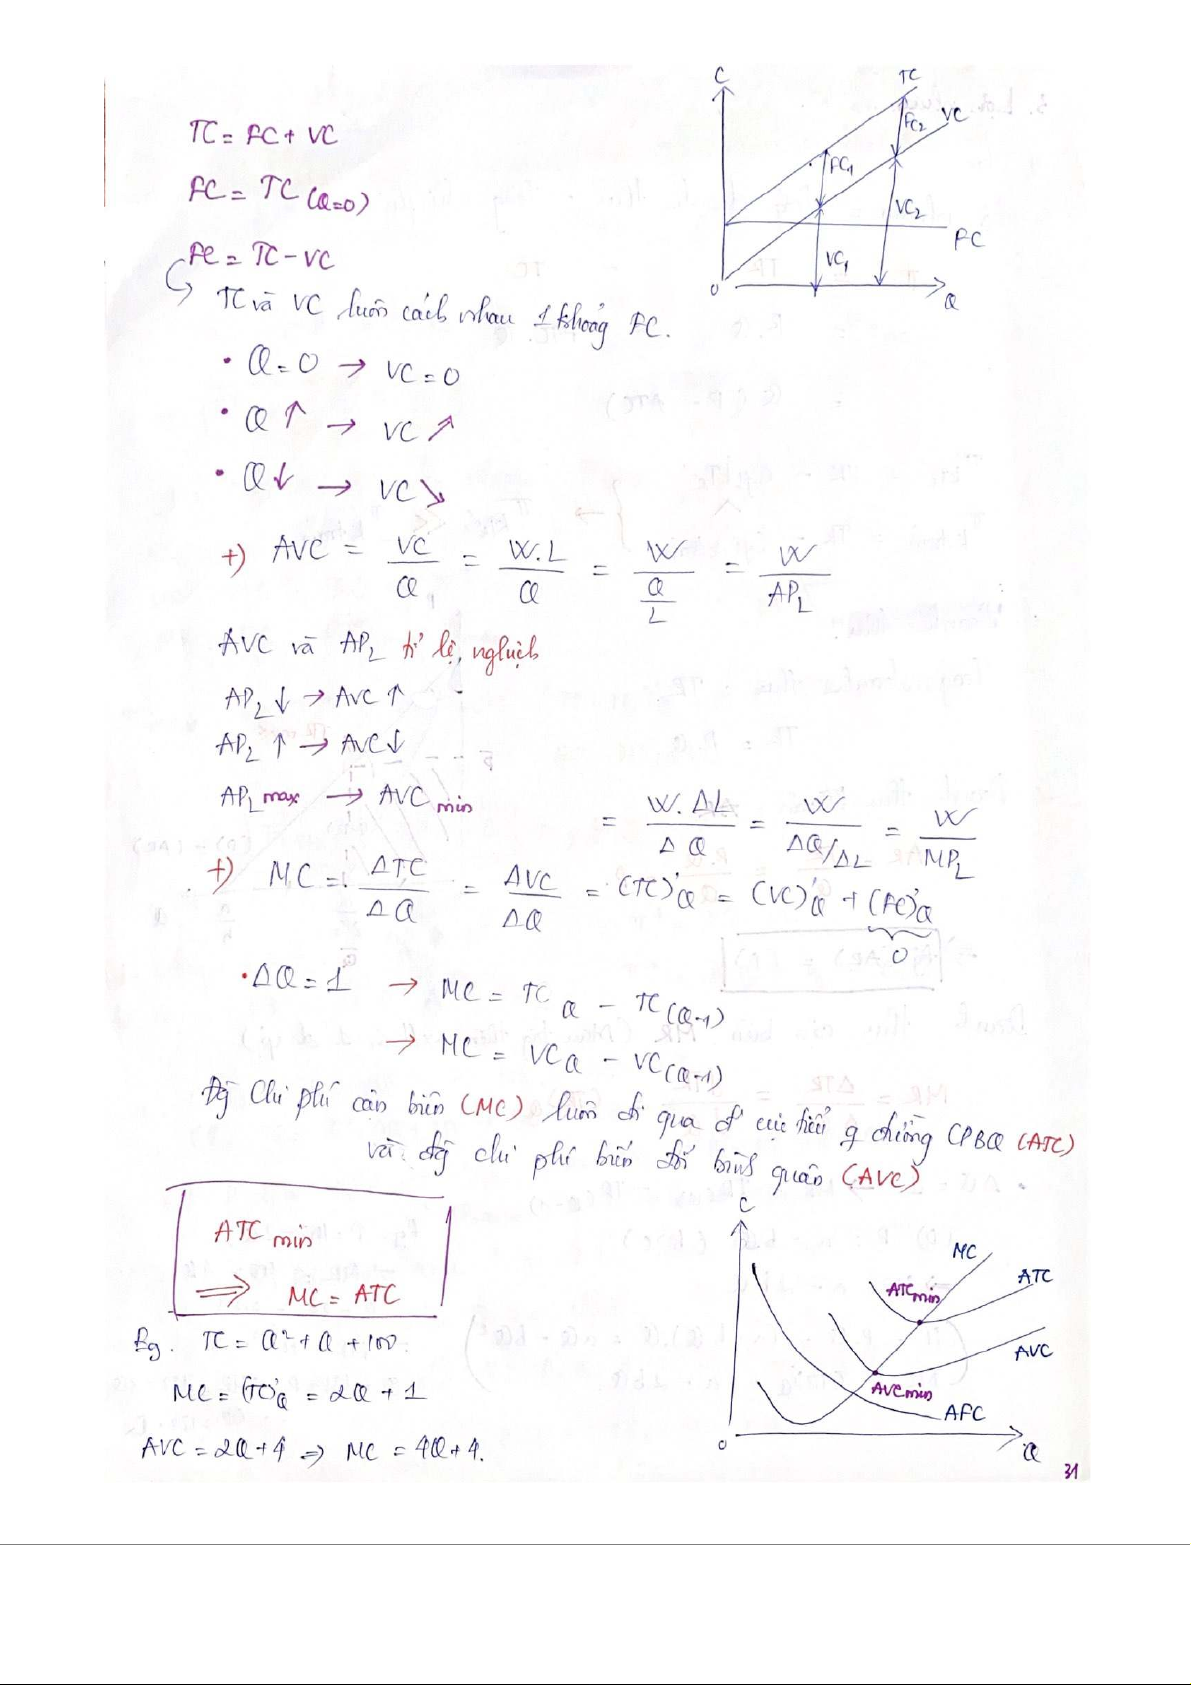 TC = FC + VC
FC = TC (Q=0)
FC = TC - VC
TC và VC luôn cách nhau 1 khoảng FC.
• Q = 0 → VC = 0
• Q ↑ → VC ↗
• Q ↓ → VC ↘
+) AVC = VC/Q = W.L/Q = W/(Q/L) = W/AP_L
AVC và AP_L tỉ lệ nghịch
AP_L ↓ → AVC ↑
AP_L ↑ → AVC ↓
AP_L max → AVC min
= W.ΔL/ΔQ = W/(ΔQ/ΔL) = W/MP_L
+) MC = ΔTC/ΔQ = ΔVC/ΔQ = (TC)'Q = (VC)'Q + (FC)'Q
0
• ΔQ = 1 → MC = TC Q - TC (Q-1)
→ MC = VC Q - VC (Q-1)
Đg chi phí cận biên (MC) luôn đi qua đ' cực tiểu q đường CPBQ (ATC)
và đg chi phí biến đổi bình quân (AVC)
ATC min
⇒ MC = ATC
Eg. TC = Q² + Q + 100
MC = (TC)'Q = 2Q + 1
AVC = 2Q + 4 ⇒ MC = 4Q + 4.
C
TC
VC
FC2
FC1
VC2
VC1
FC
0
Q
C
MC
ATC
ATC min
AVC
AVC min
AFC
0
Q
31